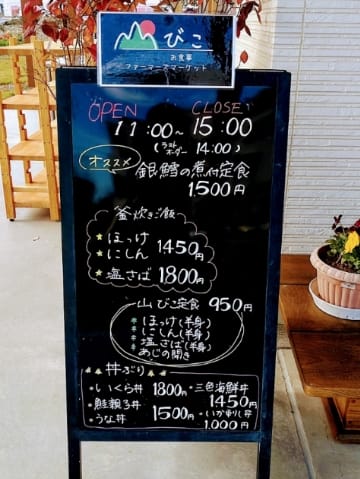 びこ
お食事
ファーマーズマーケット
OPEN CLOSE
11:00~15:00
(ラストオーダー 14:00)
オススメ
銀鱈の煮付定食
1500円
釜炊きご飯
ほっけ 1450円
にしん
塩さば 1800円
山びこ定食 950円
ほっけ(半身)
にしん(半身)
塩さば(半身)
あじの開き
丼ぶり
・いくら丼 1800円
・三色海鮮丼 1450円
・鮭親子丼 1500円
・うな丼
・いか刺し丼 1,000円